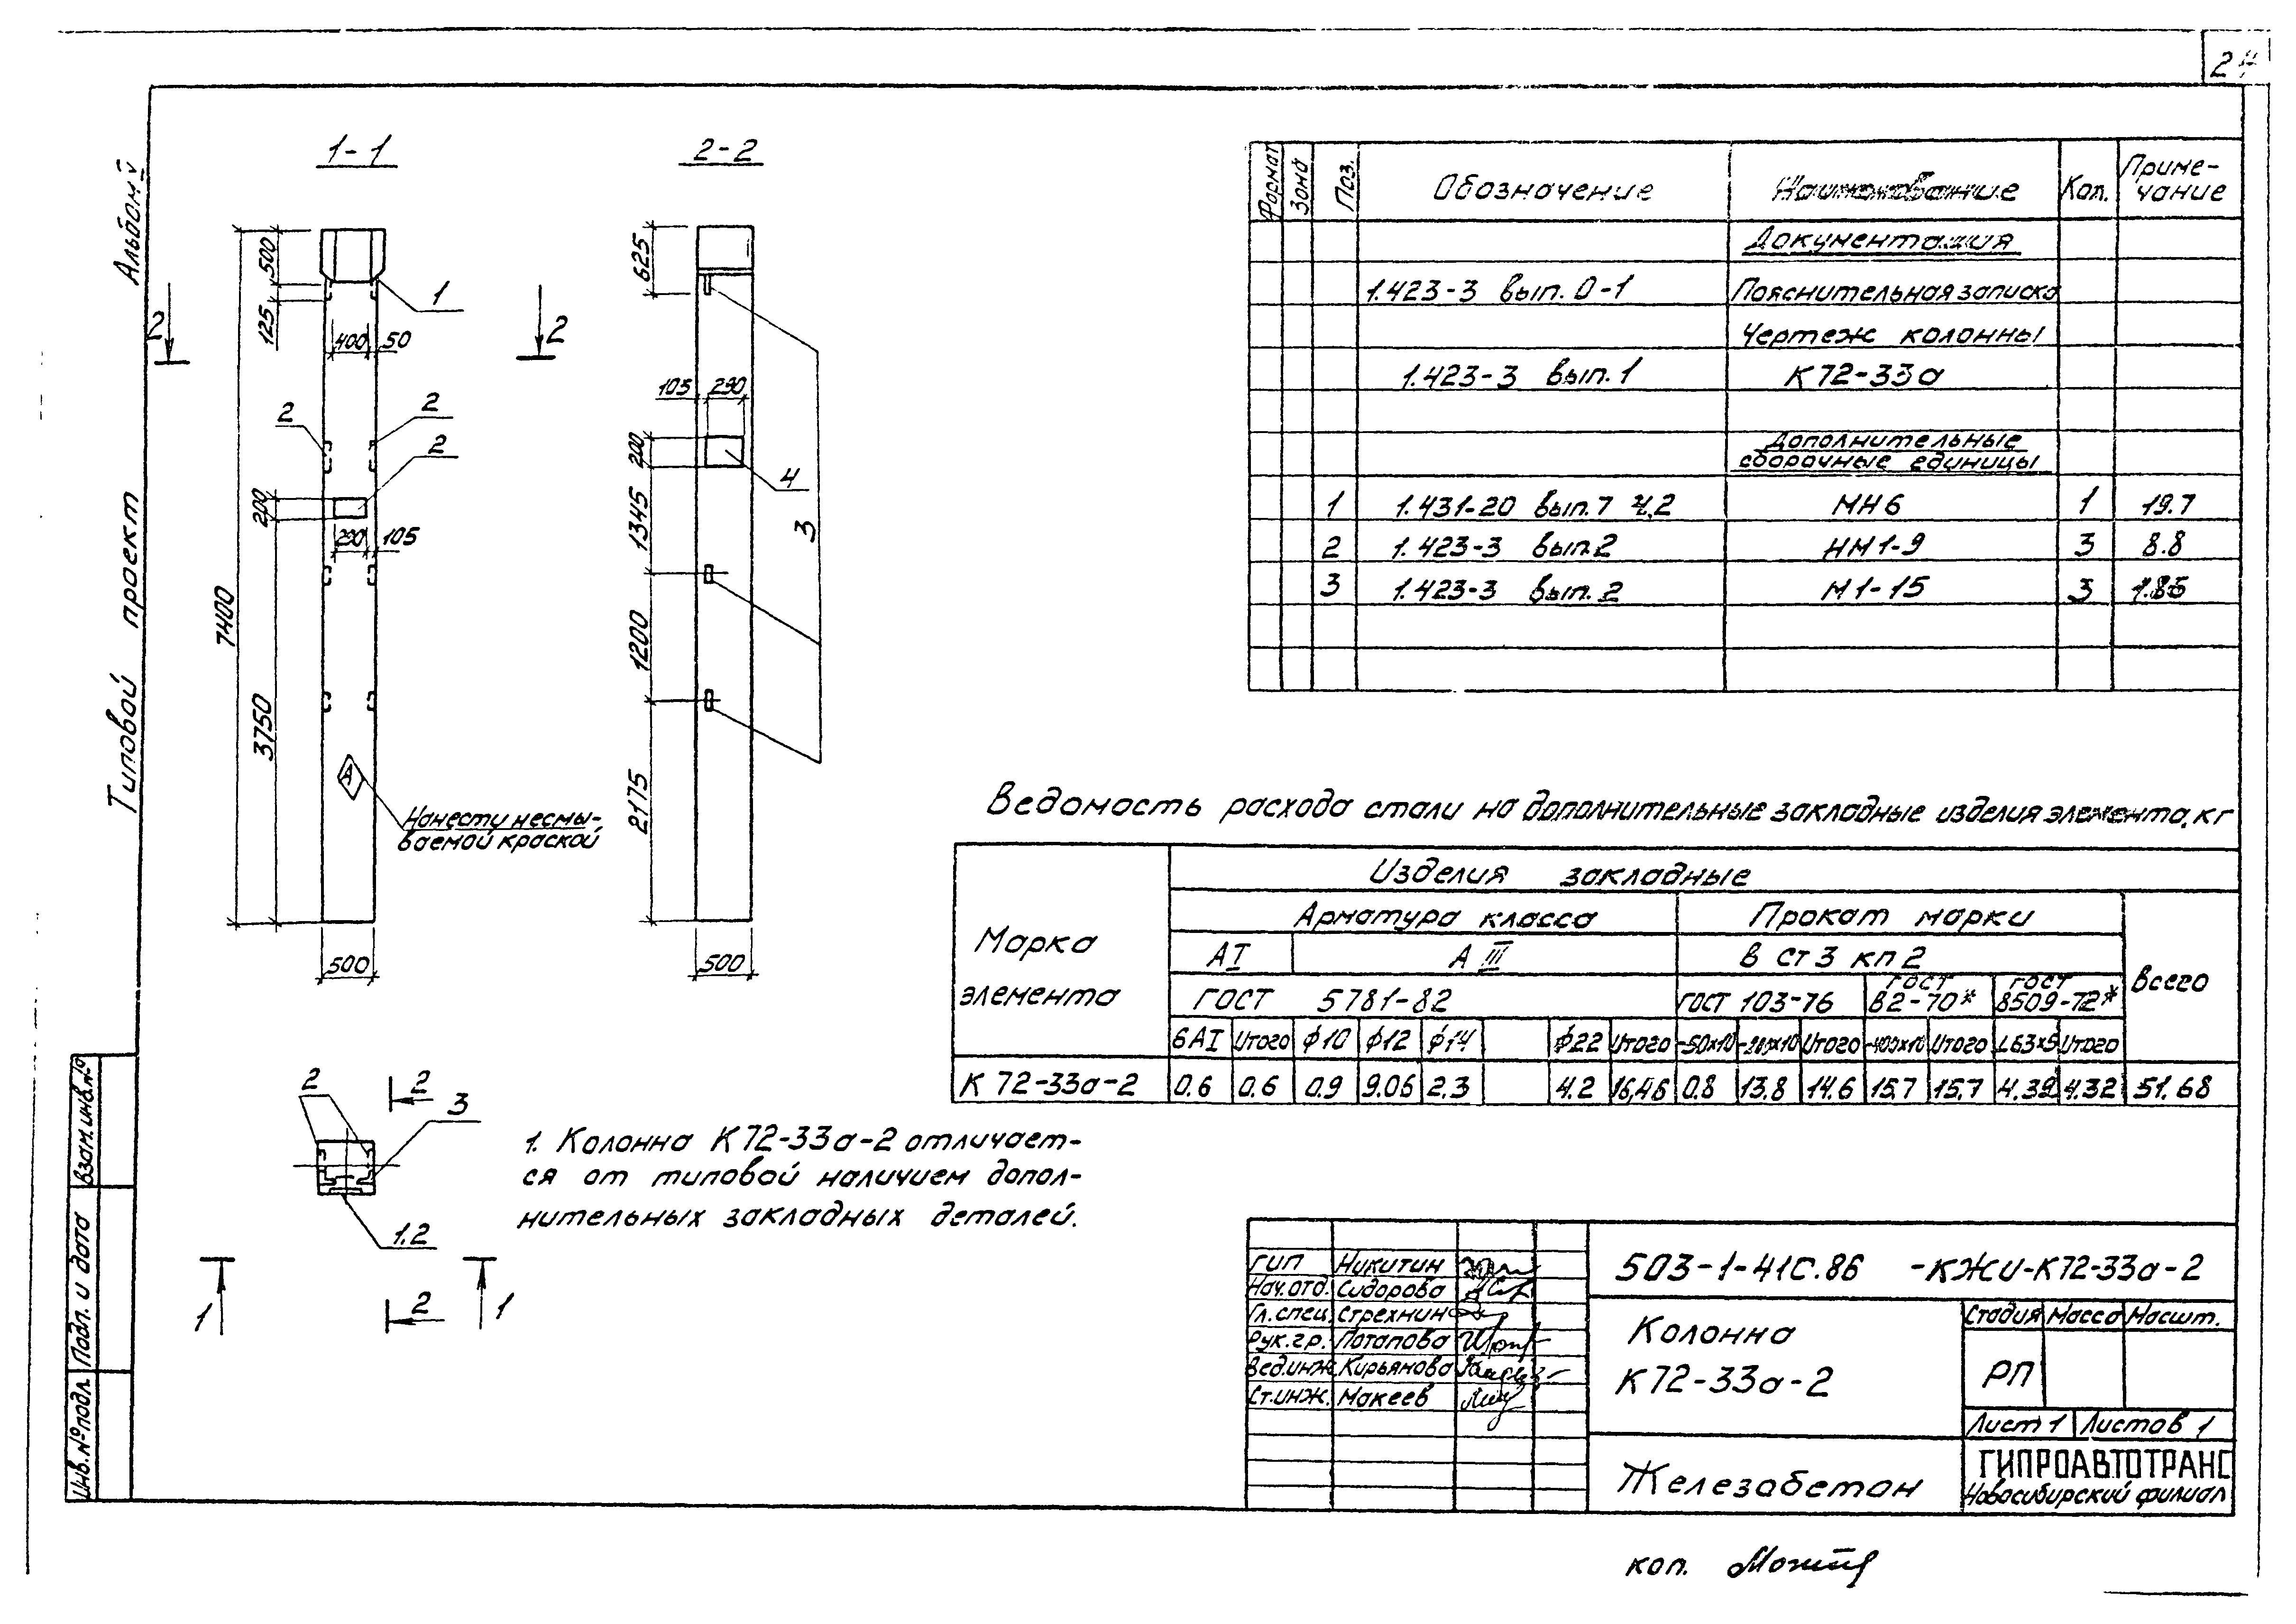 24
Альбом V
Типовой проект
1-1
2-2
500
125
400
50
1
2
2
2
2
2
200
290
105
7400
3750
А
Нанести несмы-
ваемой краской
500
625
105
290
200
4
1345
3
1200
2175
500
2
2
3
1.2
1
1
2
1. Колонна К72-33а-2 отличает-
ся от типовой наличием допол-
нительных закладных деталей.
Формат Зона Поз. Обозначение Наименование Кол. Приме-
чание
Документация
1.423-3 вып. 0-1 Пояснительная записка
Чертеж колонны
1.423-3 вып. 1 К72-33а
Дополнительные
сборочные единицы
1 1.431-20 вып. 7 ч.2 МН6 1 19.7
2 1.423-3 вып.2 НМ1-9 3 8.8
3 1.423-3 вып. 2 М1-15 3
Ведомость расхода стали на дополнительные закладные изделия элемента, кг
Марка
элемента
Изделия закладные
Арматура класса Прокат марки
АI АIII В Ст3 кп 2 Всего
ГОСТ 5781-82 ГОСТ 103-76 ГОСТ
82-70* ГОСТ
8509-72*
6АI Итого ф10 ф12 ф14 ф22 Итого -50х10 -200х10 Итого -400х10 Итого L63х5 Итого
К 72-33а-2 0.6 0.6 0.9 9.06 2.3 4.2 16,46 0.8 13.8 14.6 15,7 15,7 4.32 4.32 51.68
ГИП Никитин
Нач.отд. Сидорова
Гл.спец. Стрехнин
Рук.гр. Потапова
Вед.инж. Кирьянова
Ст.инж. Макеев
503-1-41С.86 -КЖИ-К72-33а-2
Колонна
К72-33а-2
Стадия Масса Масшт.
РП
Лист 1 Листов 1
Железобетон
ГИПРОАВТОТРАНС
Новосибирский филиал
Взам.инв.№
Подп. и дата
Инв.№ подл.
коп.